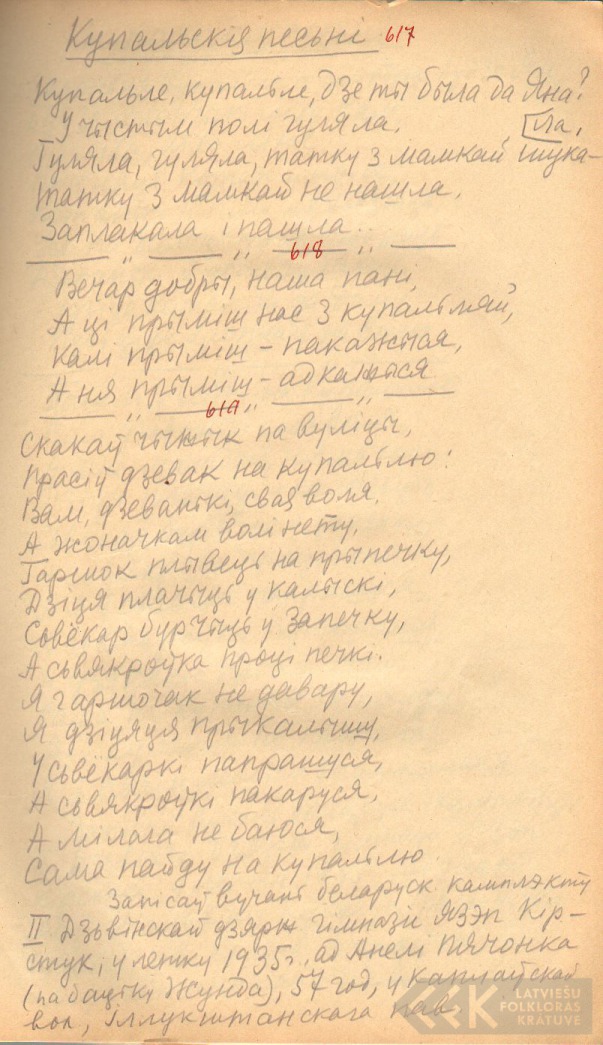 Купальскія песьні 617
Купальле, купальле, дзе ты была да Яна?
У чыстым полі гуляла.
Гуляла, гуляла, татку з мамкай шука-
ла,
Татку з мамкай не нашла,
Заплакала і пашла..
618
Вечар добры, наша пані,
А ці прыміш нас з купальляй,
Калі прыміш – пакажыся,
А ня прыміш – адкажыся
619
Скакаў чыжык па вуліцы,
Прасіў дзевак на купальлю:
Вам, дзеванькі, свая воля,
А жоначкам волі нету.
Гаршок плывець на прыпечку,
Дзіця плачыць у калыскі,
Сьвёкар бурчыць у запечку,
А сьвякроўка проці печкі.
Я гаршочак не давару,
Я дзіцяця прыкалышу,
У сьвёкаркі папрашуся,
А сьвякроўкі пакаруся,
А мілага не баюся,
Сама пайду на купальлю.
Запісаў вучань беларуск. камплэкту
II Дзьвінскай дзярж гімназіі Язэп Кір-
стук, у летку 1935г., ад Анелі Пячонка
(па бацьку Жунда), 57 год, у Каплаўскай
вол, Іллукштанскага пав.
LATVIEŠU
FOLKLORAS
KRĀTUVE